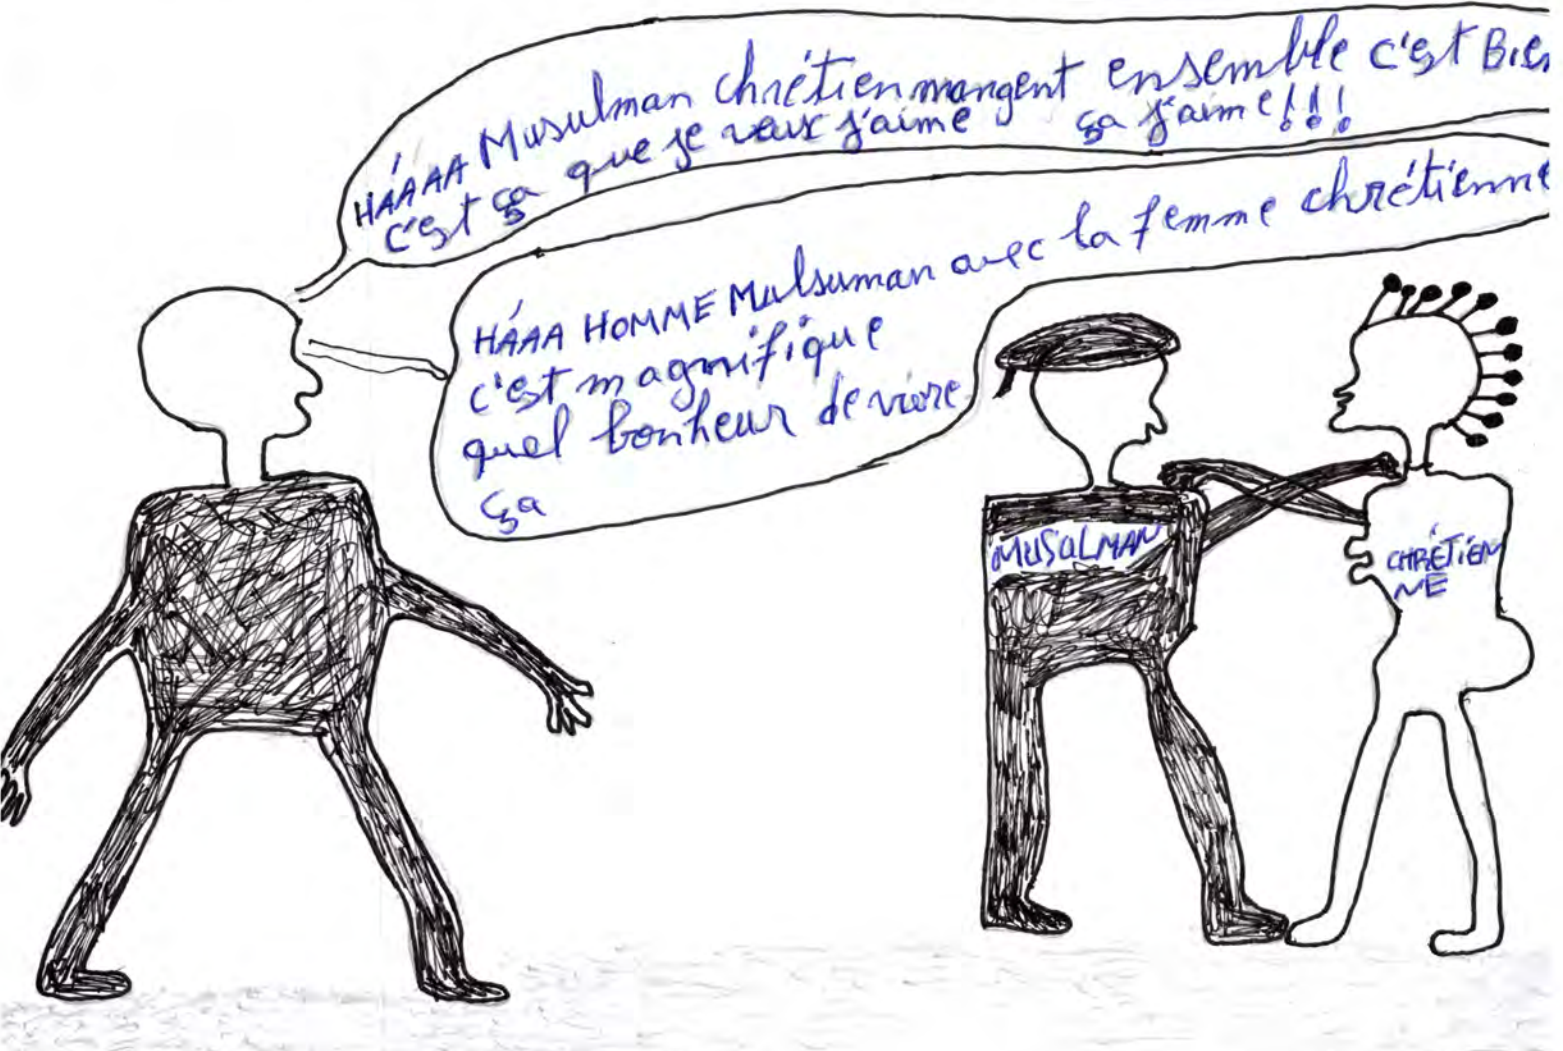 HÁAAA Musulman chrétien mangent ensemble c'est Bien
c'est ça que je veux j'aime ça j'aime!!!
HÁAA HOMME Mulsuman avec la femme chrétienne
c'est magnifique
quel bonheur de vivre
ça
MUSULMAN
CHRÉTIEN
NE